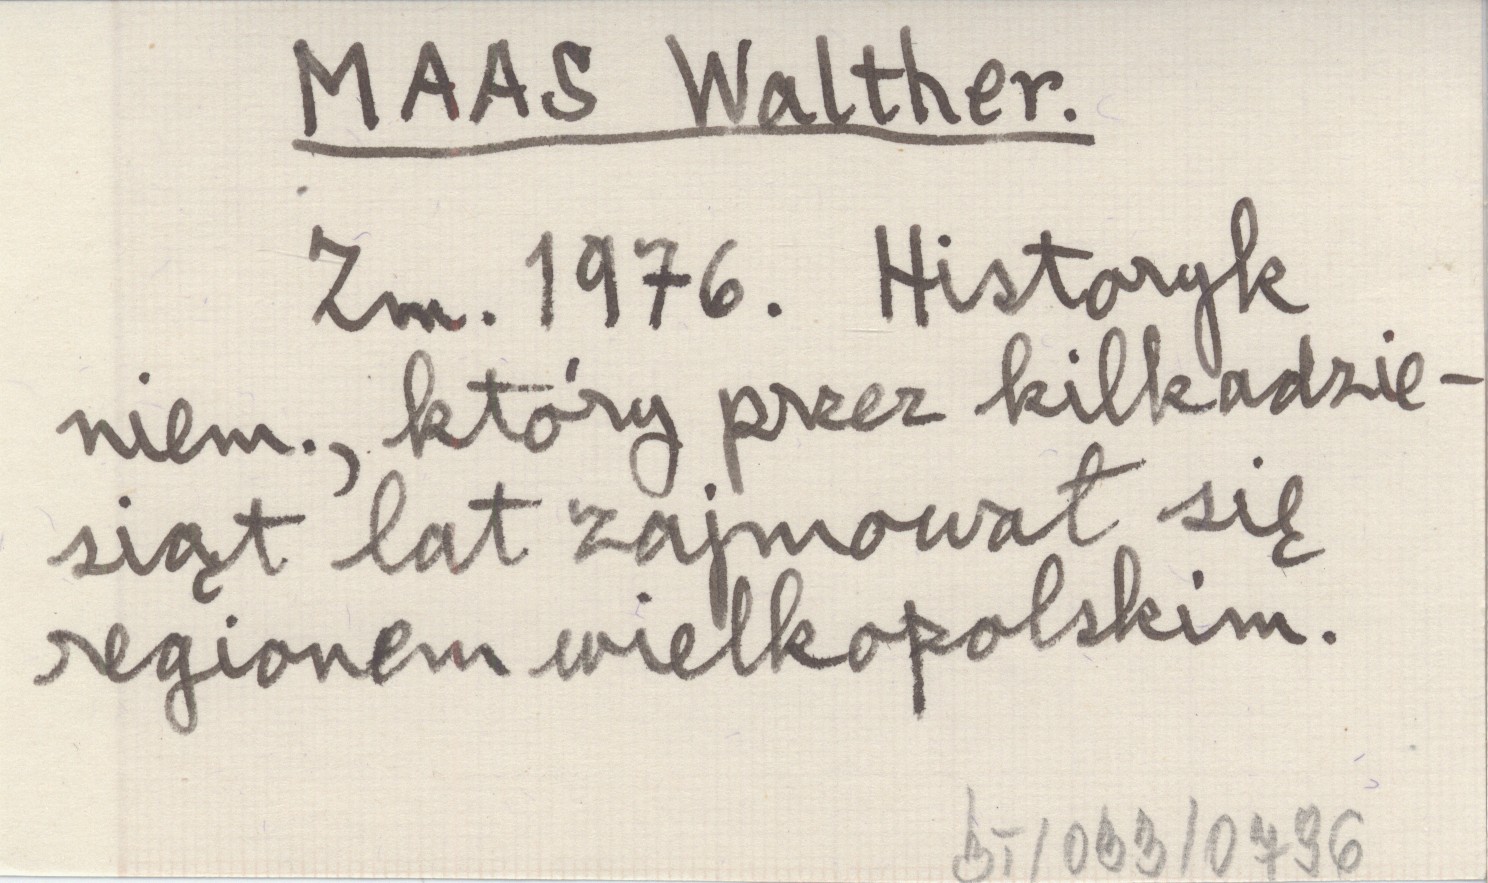 MAAS Walther.
Zm. 1976. Historyk
niem., który przez kilkadzie-
siąt lat zajmował się
regionem wielkopolskim.